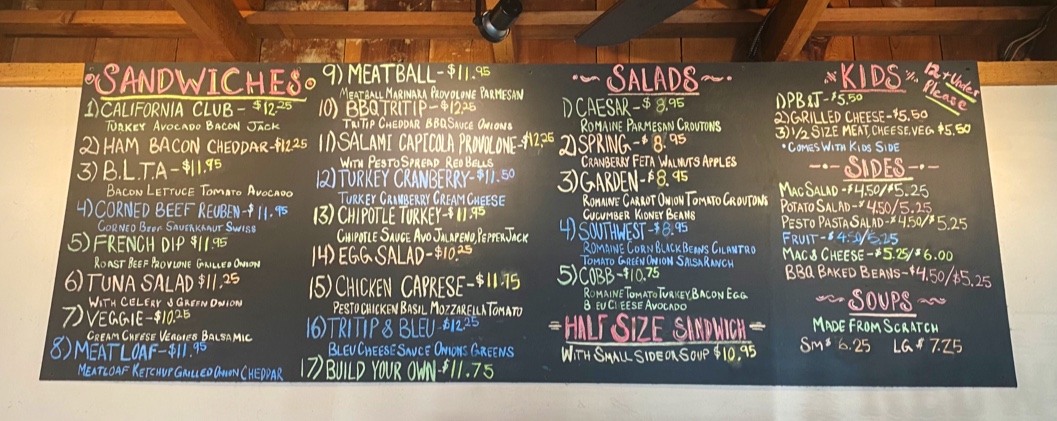 SANDWICHES
1) CALIFORNIA CLUB - $12.25
TURKEY AVOCADO BACON JACK
2) HAM BACON CHEDDAR - $12.25
3) B.L.T.A - $11.95
BACON LETTUCE TOMATO AVOCADO
4) CORNED BEEF REUBEN - $11.95
CORNED BEEF SAUERKRAUT SWISS
5) FRENCH DIP $11.95
ROAST BEEF PROVLONE GRILLED ONION
6) TUNA SALAD $11.25
WITH CELERY & GREEN ONION
7) VEGGIE - $10.25
CREAM CHEESE VEGGIES BALSAMIC
8) MEATLOAF - $11.95
MEATLOAF KETCHUP GRILLED ONION CHEDDAR
9) MEATBALL - $11.95
MEATBALL MARINARA PROVOLONE PARMESAN
10) BBQ TRITIP - $12.25
TRITIP CHEDDAR BBQ SAUCE ONIONS
11) SALAMI CAPICOLA PROVOLONE - $12.25
WITH PESTO SPREAD RED BELLS
12) TURKEY CRANBERRY - $11.50
TURKEY CRANBERRY CREAM CHEESE
13) CHIPOTLE TURKEY - $11.95
CHIPOTLE SAUCE AVO JALAPENO, PEPPER JACK
14) EGG SALAD - $10.25
15) CHICKEN CAPRESE - $11.75
PESTO CHICKEN BASIL MOZZARELLA TOMATO
16) TRITIP & BLEU - $12.25
BLEU CHEESE SAUCE ONIONS GREENS
17) BUILD YOUR OWN - $11.75
SALADS
1) CAESAR - $8.95
ROMAINE PARMESAN CROUTONS
2) SPRING - $8.95
CRANBERRY FETA WALNUTS APPLES
3) GARDEN - $8.95
ROMAINE CARROT ONION TOMATO CROUTONS
CUCUMBER KIDNEY BEANS
4) SOUTHWEST - $8.95
ROMAINE CORN BLACK BEANS CILANTRO
TOMATO GREEN ONION SALSA RANCH
5) COBB - $10.75
ROMAINE TOMATO TURKEY, BACON EGG
BLEU CHEESE AVOCADO
HALF SIZE SANDWICH
WITH SMALL SIDE OR SOUP $10.95
KIDS
12 & Under
Please
1) PB&J - $5.50
2) GRILLED CHEESE - $5.50
3) 1/2 SIZE MEAT, CHEESE, VEG $5.50
• COMES WITH KIDS SIDE
SIDES
MAC SALAD - $4.50/$5.25
POTATO SALAD - $4.50/5.25
PESTO PASTA SALAD - $4.50/$5.25
FRUIT - $4.50/5.25
MAC & CHEESE - $5.25/$6.00
BBQ BAKED BEANS - $4.50/$5.25
SOUPS
MADE FROM SCRATCH
SM $6.25 LG $7.25